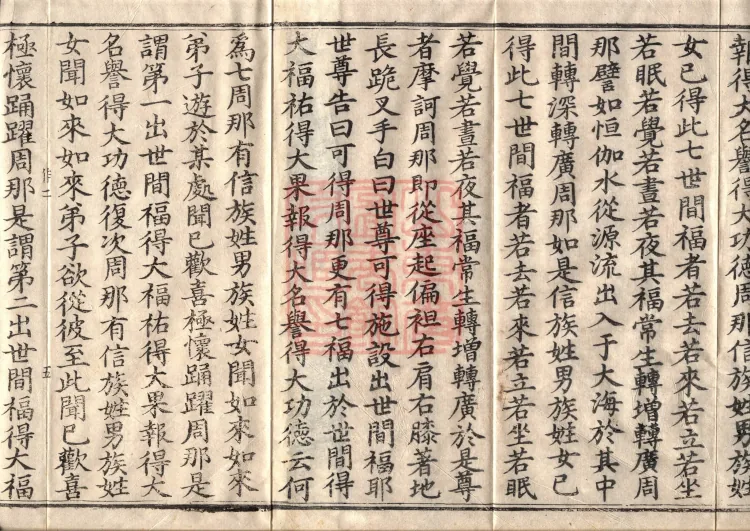 報得大名譽得大功德周那信族姓男族姓
女已得此七世間福者若去若來若立若坐
若眠若覺若晝若夜其福常生轉增轉廣周
那譬如恒伽水從源流出入于大海於其中
間轉深轉廣周那如是信族姓男族姓女已
得此七世間福者若去若來若立若坐若眠
若覺若晝若夜其福常生轉增轉廣於是尊
者摩訶周那即從座起偏袒右肩右膝著地
長跪叉手白曰世尊可得施設出世間福耶
世尊告曰可得周那更有七福出於世間得
大福祐得大果報得大名譽得大功德云何
爲七周那有信族姓男族姓女聞如來如來
弟子遊於某處聞已歡喜極懷踊躍周那是
謂第一出世間福得大福祐得大果報得大
名譽得大功德復次周那有信族姓男族姓
五
女聞如來如來弟子欲從彼至此聞已歡喜
極懷踊躍周那是謂第二出世間福得大福